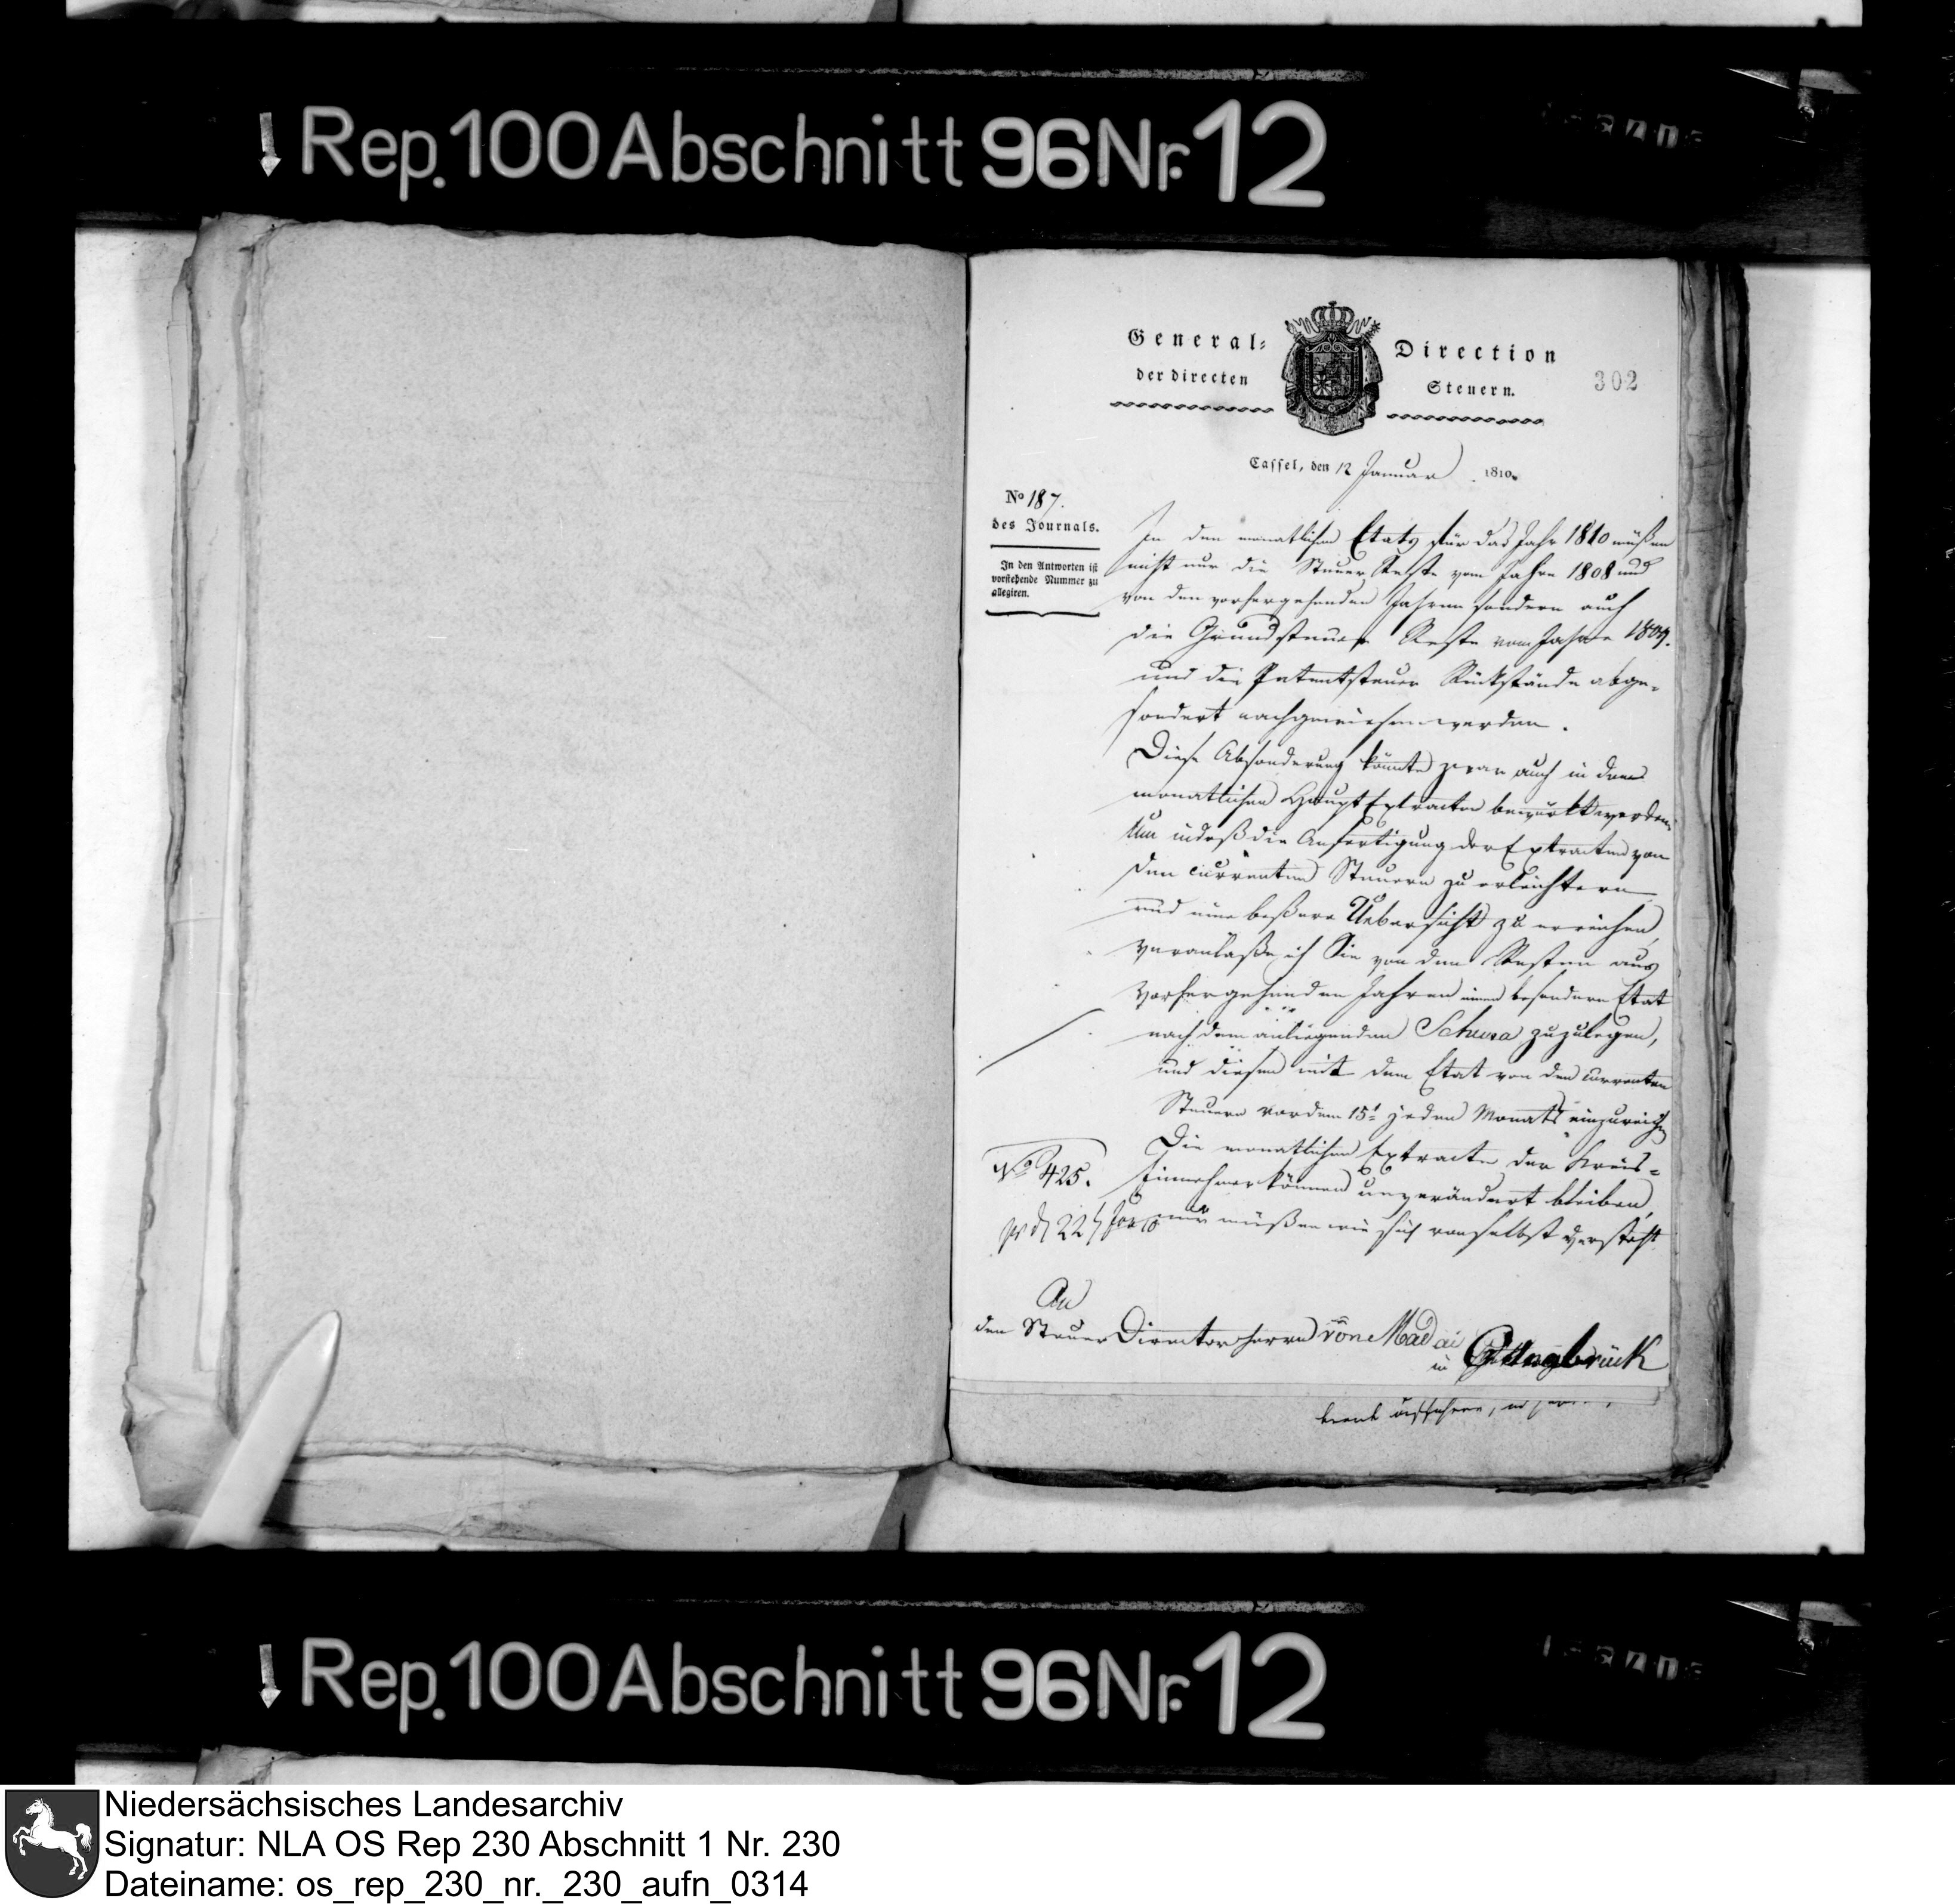 Rep. 100 Abschnitt 96 Nr. 12
General- Direction
der directen Steuern.
302
Cassel, den 12 Januar 1810.
No 187.
des Journals.
In den Antworten ist
vorstehende Nummer zu
allegiren.
In den monatlichen Etats für das Jahr 1810 müßen
nicht nur die Steuer Reste vom Jahre 1808 und
von den vorhergehenden Jahren sondern auch
die Grundsteuer Reste vom Jahre 1809.
und die Patentsteuer Rückstände abge-
sondert nachgewiesen werden.
Diese Absonderung könnte zwar auch in den
monatlichen HauptExtracten bewürkt werden,
Um indeß die Anfertigung der Extracten von
den currenten Steuern zu erleichtern
und eine beßere Uebersicht zu erreichen,
veranlaße ich Sie von den Resten aus
vorhergehenden Jahren einen besondern Etat
nach dem anliegenden Schema zuzulegen,
und diesen mit dem Etat von den currenten
Steuern vor dem 15t jeden Monats einzureichen
Die monatlichen Extracte der Kreis-
Einnehmer können unverändert bleiben,
nur müßen wie sich von selbst versteht
No 425.
An
den Steuer Director Herrn von Madai
in Osnabrück
Rep. 100 Abschnitt 96 Nr. 12
Niedersächsisches Landesarchiv
Signatur: NLA OS Rep 230 Abschnitt 1 Nr. 230
Dateiname: os_rep_230_nr._230_aufn_0314